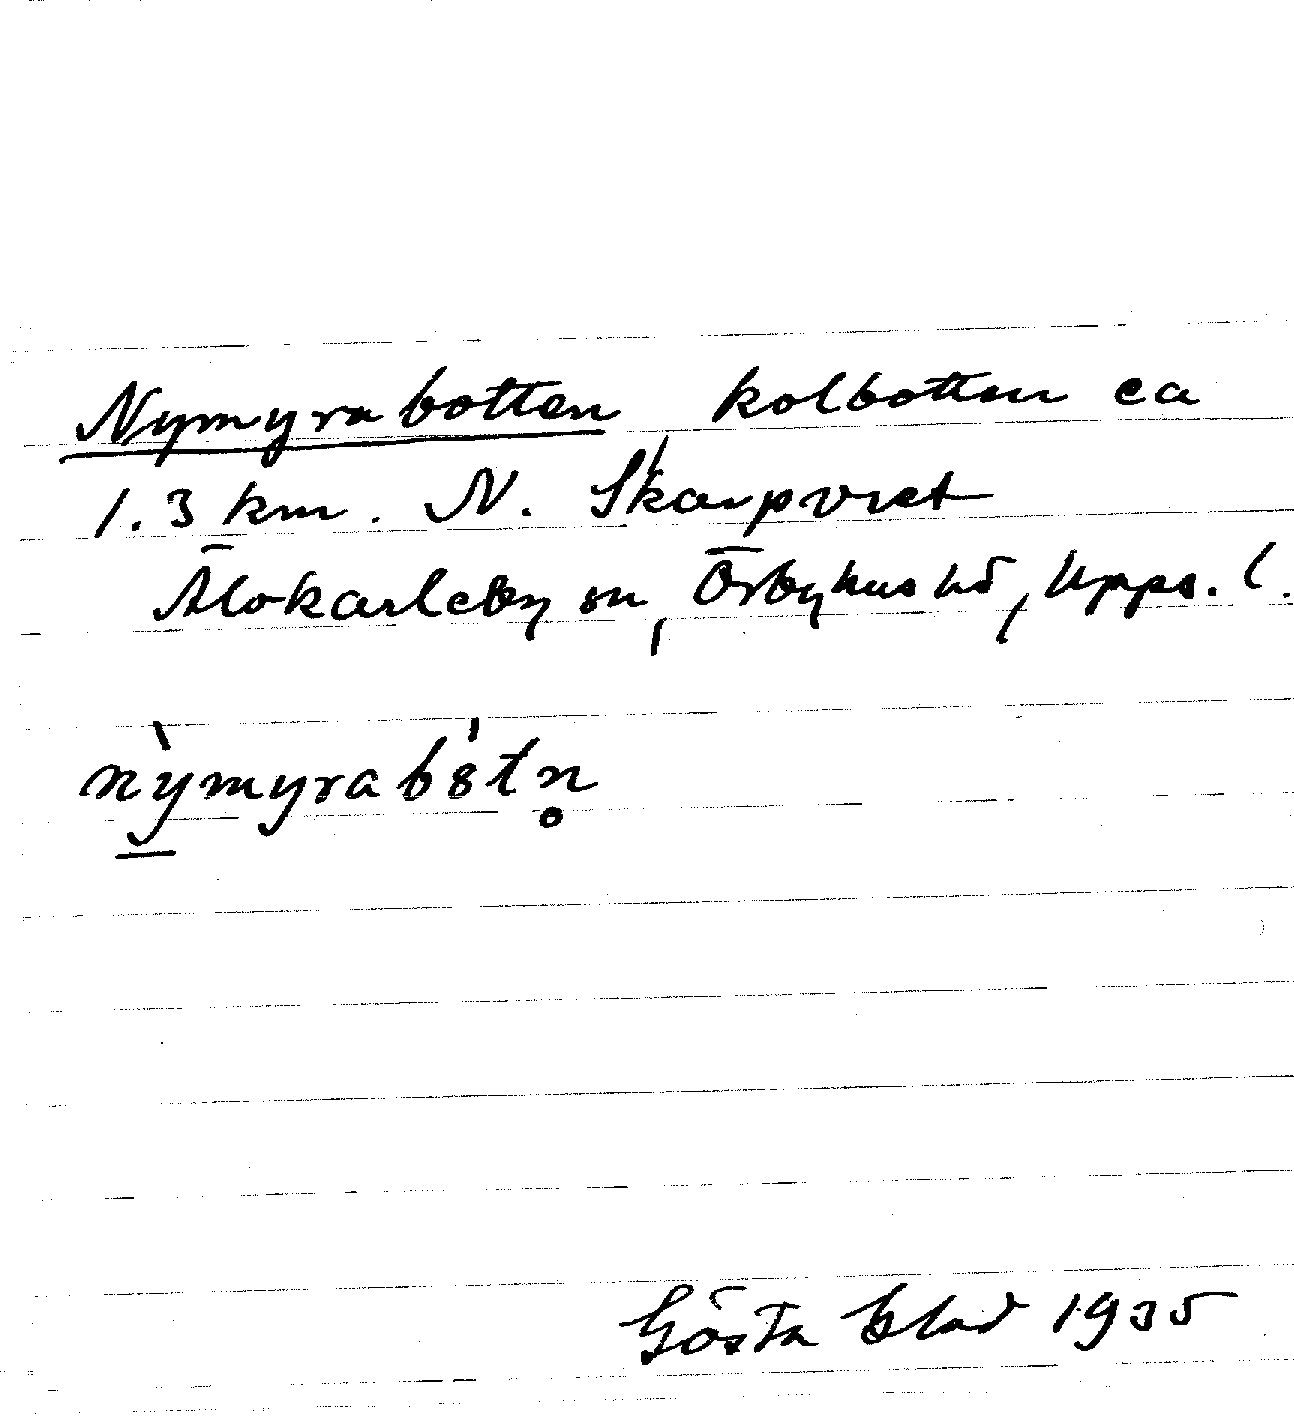 Nymyrabotten kolbotten ca
1.3 km. N. Skarpvret
Älvkarleby sn, Örbyhus hd, Upps. l.
nỳmyrabȣ́tn̥
Gösta Blad 1935